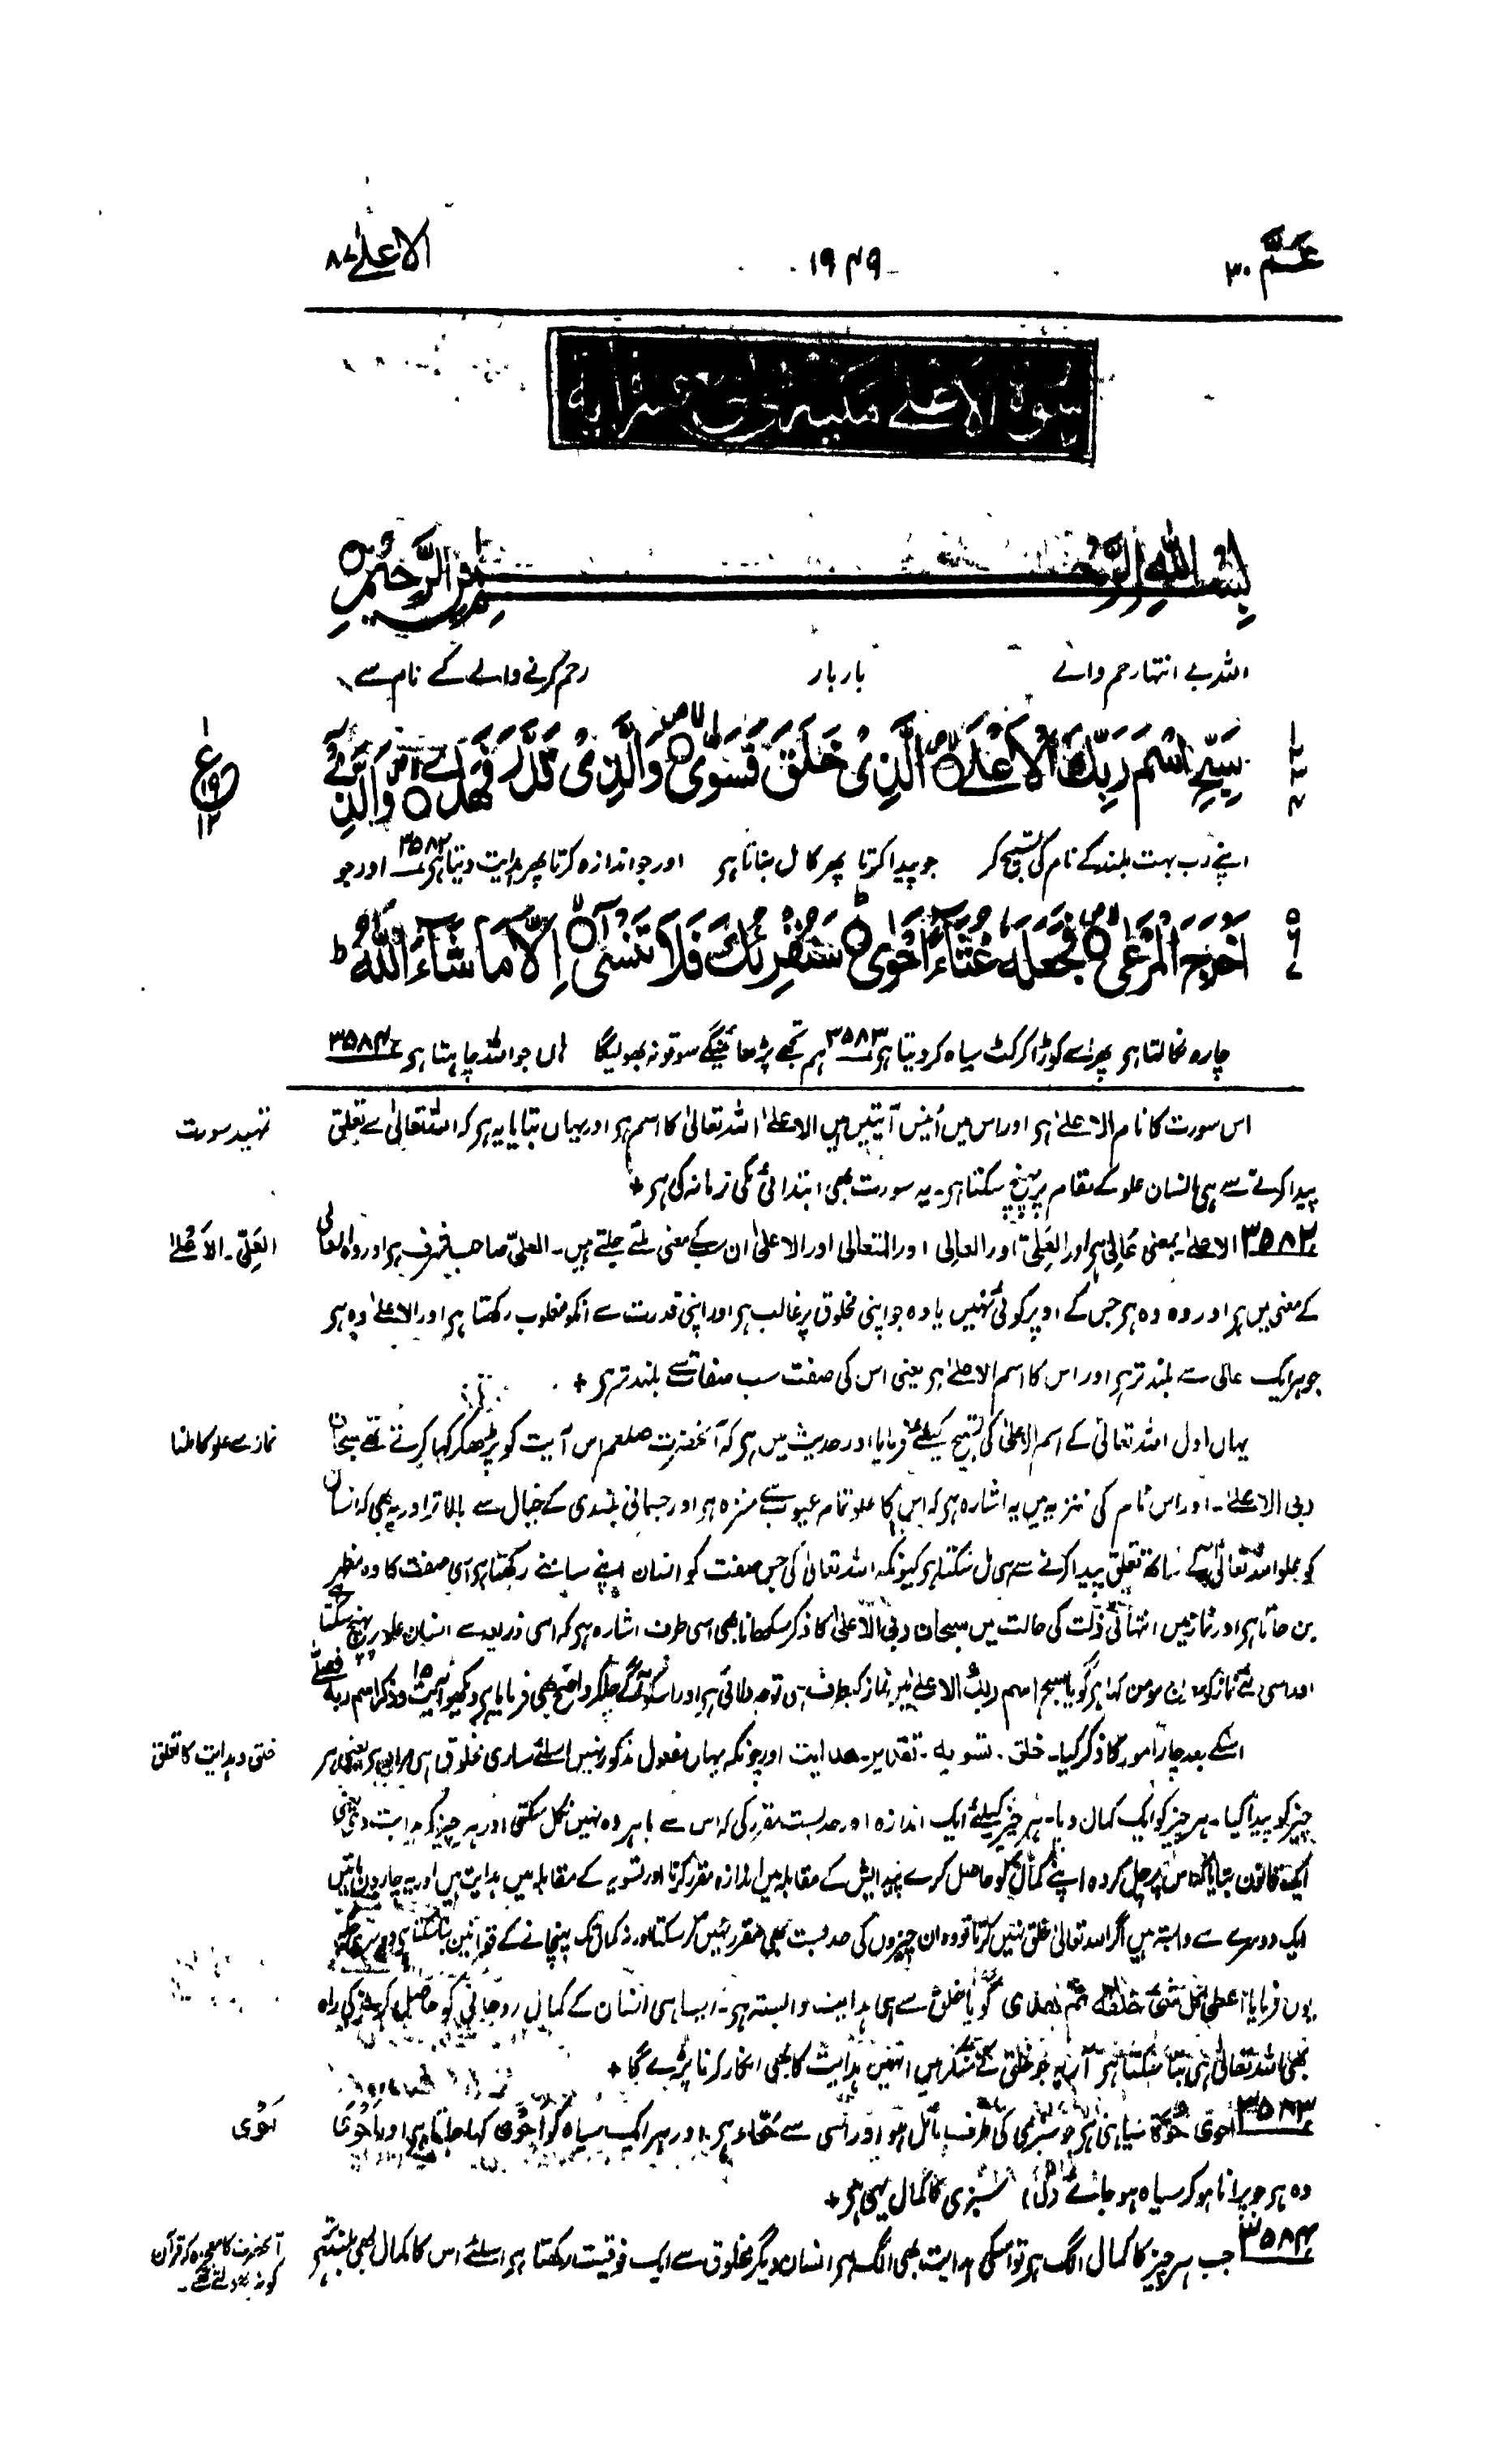 عمّ ۳۰
۱۹۴۹
الاعلیٰ ۸۷
سورة الاعلے مکیة
بِسْمِ اللّٰهِ الرَّحْمٰنِ الرَّحِیْمِ
اللہ بے انتہا رحم والے بار بار رحم کرنے والے کے نام سے
سَبِّحِ اسْمَ رَبِّكَ الْاَعْلَے الَّذِیْ خَلَقَ فَسَوّٰی وَالَّذِیْ قَدَّرَ فَهَدٰے وَالَّذِیْ
اپنے رب بہت بلند کے نام کی تسبیح کر جو پیدا کرتا پھر کامل بناتا ہر اور جو اندازہ کرتا پھر ہدایت دیتا ہر ۳۵۸۲ اور جو
اَخْرَجَ الْمَرْعٰی فَجَعَلَهٗ غُثَآءً اَحْوٰی سَنُقْرِئُكَ فَلَا تَنْسٰۤی اِلَّا مَا شَآءَ اللّٰهُ
چارہ نکالتا ہر پھر اسے کوڑا کرکٹ سیاہ کر دیتا ہر ۳۵۸۳ ہم تجھے پڑھائینگے سو تو نہ بھولیگا ہاں جو اللہ چاہتا ہر ۳۵۸۴
تمہید سورت
اس سورت کا نام الاعلےٰ ہر اور اس میں اُنیس آیتیں ہیں الاعلےٰ اللہ تعالیٰ کا اسم ہر اور یہاں بتایا یہ ہر کہ اللہ تعالیٰ سے تعلق
پیدا کرنے سے ہی انسان علو کے مقام پر پہنچ سکتا ہر۔ یہ سورت بھی ابتدائی مکی زمانہ کی ہر +
العَلِیّ۔ الاَعْلےٰ
۳۵۸۲ الاعلےٰ۔ بمعنی عَالِی ہر اور العَلِیّ اور العالی اور المتعالی اور الاعلیٰ ان سب کے معنی ملتے جلتے ہیں۔ العلیّ صاحب شرف ہر اور وہ العالی
کے معنی میں ہر اور وہ وہ ہر جس کے اوپر کوئی نہیں یا وہ جو اپنی مخلوق پر غالب ہر اور اپنی قدرت سے انکو مغلوب رکھتا ہر اور الاعلےٰ وہ ہر
جو ہر ایک عالی سے بلند تر ہر اور اس کا اسم الاعلےٰ ہر یعنی اس کی صفت سب صفات سے بلند تر ہر +
نماز سے علو کا ملنا
یہاں اول اللہ تعالیٰ کے اسم الاعلیٰ کی تسبیح کیلئے فرمایا اور حدیث میں ہر کہ آنحضرت صلعم اس آیت کو پڑھکر کہا کرتے تھے سبحان
ربی الاعلےٰ۔ اور اس نام کی تنزیہ میں یہ اشارہ ہر کہ اس کا علو تمام عیوب سے منزہ ہر اور جسمانی بلندی کے خیال سے بالاتر اور یہ بھی کہ انسان
کو علو اللہ تعالیٰ کے ساتھ تعلق پیدا کرنے سے ہی مل سکتا ہر کیونکہ اللہ تعالیٰ کی جس صفت کو انسان اپنے سامنے رکھتا ہر اسی صفت کا وہ مظہر
بن جاتا ہر اور نماز میں انتہائی ذلت کی حالت میں سبحان ربی الاعلیٰ کا ذکر سکھانا بھی اسی طرف اشارہ ہر کہ اسی ذریعہ سے انسان علو پر پہنچ سکتا ہے
اور اسی لئے نماز کو مومن کہا ہر گویا سبح اسم ربك الاعلےٰ میں نماز کیطرف ہی توجہ دلائی ہر اور اسکو آگے چلکر واضح بھی فرمایا ہر دیکھو آیت ۱۵ وذکر اسم ربه فصلّے
خلق و ہدایت کا تعلق
اسکے بعد چار امور کا ذکر کیا۔ خلق۔ تسویہ۔ تقدیر۔ ہدایت اور چونکہ یہاں مفعول مذکور نہیں اسلئے ساری مخلوق ہی مراد ہر یعنی ہر
چیز کو پیدا کیا۔ ہر چیز کو ایک کمال دیا۔ ہر چیز کیلئے ایک اندازہ اور حد بست مقرر کی کہ اس سے باہر وہ نہیں نکل سکتی اور ہر چیز کو ہدایت دی یعنی
ایک قانون بتایا کہ اس پر چل کر وہ اپنے کمال کو حاصل کرے پیدایش کے مقابلہ میں اندازہ مقرر کرنا اور تسویہ کے مقابلہ میں ہدایت ہیں اور یہ چاروں باتیں
ایک دوسرے سے وابستہ ہیں اگر اللہ تعالیٰ خلق نہیں کرتا تو وہ ان چیزوں کی حد بست بھی مقرر نہیں کر سکتا اور نہ کمال تک پہنچانے کے قوانین بتا سکتا ہر دوسری جگہ
یوں فرمایا اعطی کل شیٔ خلقه ثم ھدی گویا خلق سے ہی ہدایت وابستہ ہر۔ ایسا ہی انسان کے کمال روحانی کو حاصل کرنے کی راہ
بھی اللہ تعالیٰ ہی بتا سکتا ہر آریہ جو خلق کے منکر ہیں انہیں ہدایت کا بھی انکار کرنا پڑے گا +
اَحْوٰی
۳۵۸۳ احوٰی حُوَّة سیاہی ہر جو سبزی کی طرف مائل ہو اور اسی سے حَوّاء ہر اور ہر ایک سیاہ کو اَحْوٰی کہا جاتا ہر اور اَحْوٰی
وہ ہر جو پرانا ہو کر سیاہ ہو جائے (ل) سبزی کا کمال یہی ہر +
آنحضرت کا معجزہ کہ قرآن کو نہ بھولتے تھے۔
۳۵۸۴ جب ہر چیز کا کمال الگ ہر تو اسکی ہدایت بھی الگ ہر انسان دیگر مخلوق سے ایک فوقیت رکھتا ہر اسلئے اس کا کمال بھی بلند تر ہر